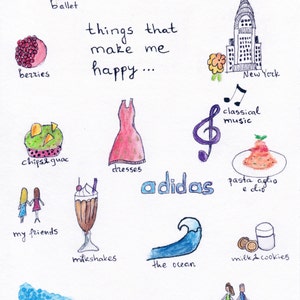 ballet
things that
make me
happy...
berries
New York
classical
music
chips & guac
dresses
adidas
pasta aglio
e olio
my friends
milkshakes
the ocean
milk & cookies